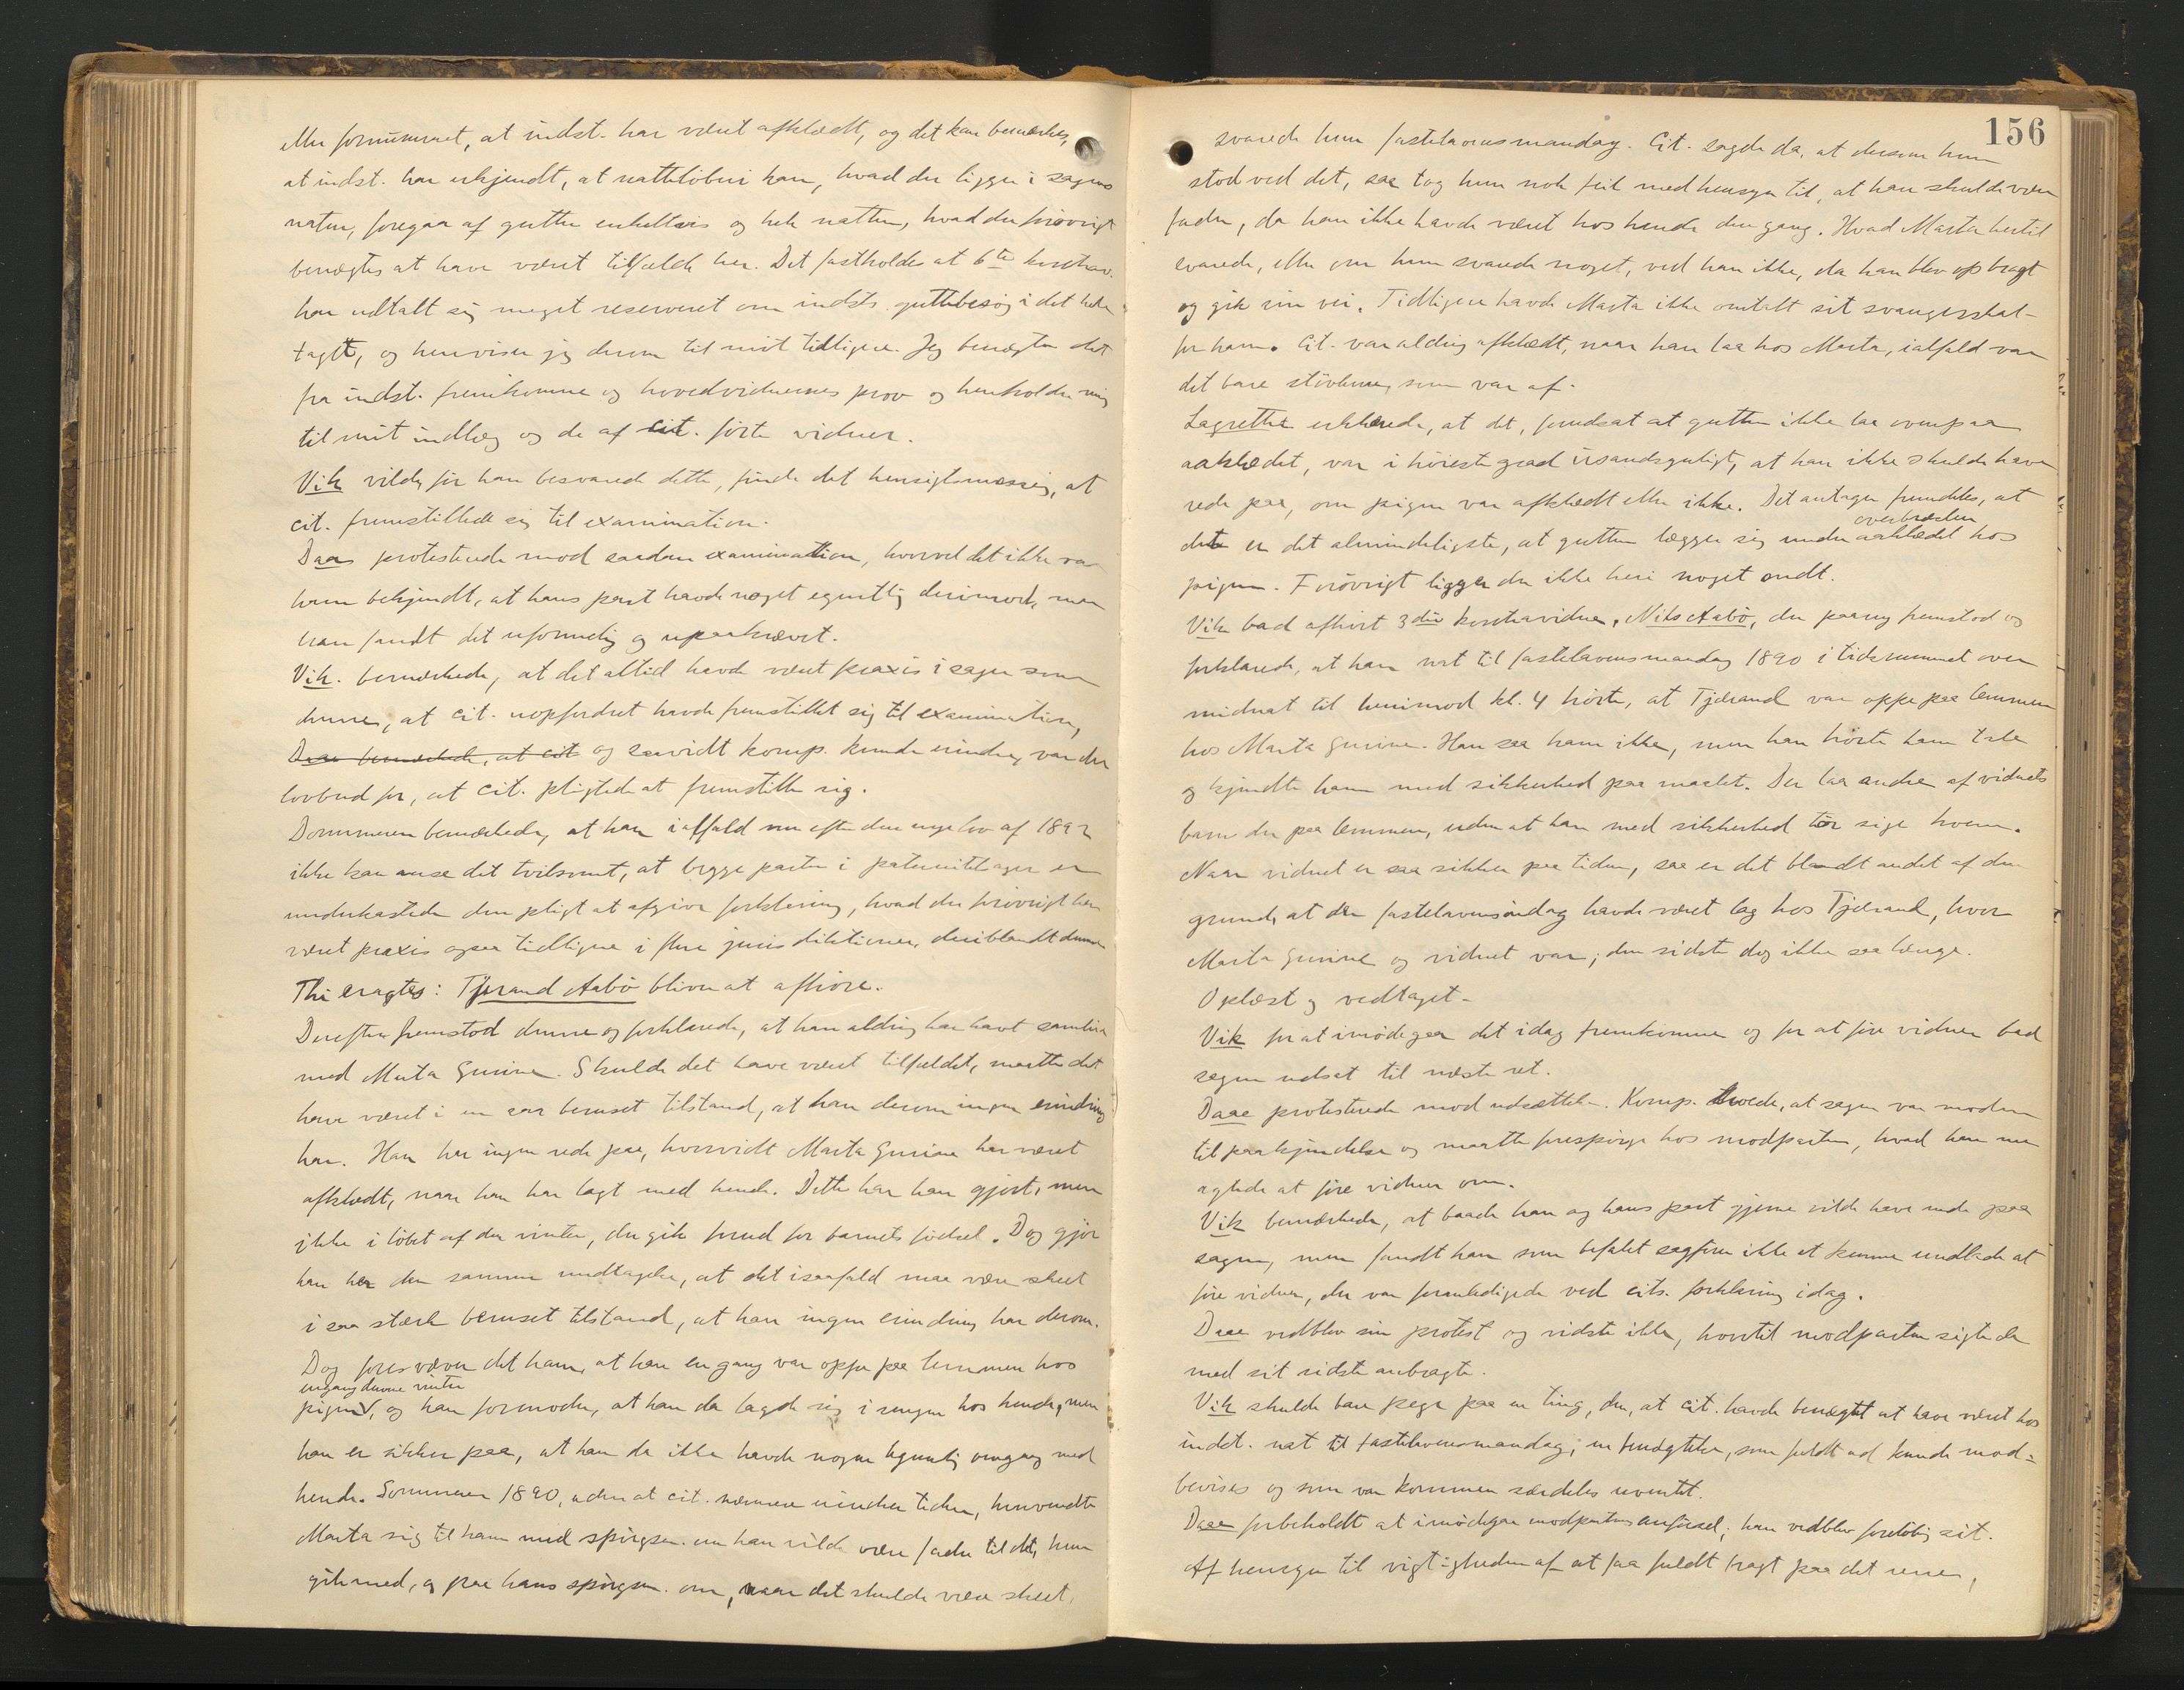 eller fornummet, at indst. har været afklædt, og det kan bemærkes,
at indst. har erkjendt, at natteløberi kan, hvad der ligger i sagens
natur, foregaa af gutter enkeltvis og hele natten, hvad der forøvrigt
benægtes at have været tilfælde her. Det fastholdes at 6te kontrav.
har udtalt sig meget reserveret om indsts. guttebesøg i det hele
taget, og henviser jeg derom til mit tidligere. Jeg benægter det
fra indst. fremkomne og hovedvidnernes prov og henholder mig
til mit indlæg og de af cit. førte vidner.
Vik vilde, før han besvarede dette, finde det hensigtsmæssig, at
cit. fremstillede sig til examination.
Daae protesterede mod saadan examination, hvorvel det ikke var
ham bekjendt, at hans part havde noget egentlig derimod, men
han fandt det ufornuftig og upaakrævet.
Vik. bemærkede, at det altid havde været praxis i sager som
denne, at cit. uopfordret havde fremstillet sig til examination,
Daae bemærkede, at cit og saavidt komp. kunde erindre, var der
lovbud for, at cit. pligtede at fremstille sig.
Dommeren bemærkede, at han ialfald nu efter den nye lov af 1892
ikke kan anse det tvilsomt, at begge parter i paternitetsager er
underkastede den pligt at afgive forklaring, hvad der forøvrigt har
været praxis ogsaa tidligere i flere jurisdiktioner, deriblandt denne
Thi eragtes: Tjerand Aabø bliver at afhøre.
Derefter fremstod denne og forklarede, at han aldrig har havt samleie
med Marta Gurine. Skulde det have været tilfældet, maatte det
have været i en saa beruset tilstand, at han derom ingen erindring
har. Han har ingen rede paa, hvorvidt Marta Gurine har været
afklædt, naar han har lagt med hende. Dette har han gjort, men
ikke i løbet af den vinter, der gik forud for barnets fødsel. Dog gjør
han her den samme undtagelse, at det isaafald maa være skeet
i saa stærk beruset tilstand, at han ingen erindring har derom.
Dog foresvæver det ham, at han en gang var oppe paa lemmen hos
engang denne vinter
pigen, og han formoder, at han da lagde sig i sengen hos hende, men
han er sikker paa, at han da ikke havde nogen egentlig omgang med
hende. Sommeren 1890, uden at cit. nærmere erindrer tiden, henvendte
Marta sig til ham med spørgsm. om han vilde være fader til det, hun
gik med, og paa hans spørgsm. om, naar det skulde være skeet,
156
svarede hun fastelavnsmandag. Cit. sagde da, at dersom hun
stod ved det, saa tog hun nok feil med hensyn til, at han skulde være
fader, da han ikke havde været hos hende den gang. Hvad Marta hertil
svarede, eller om hun svarede noget, ved han ikke, da han blev opbragt
og gik sin vei. Tidligere havde Marta ikke omtalt sit svangerskab
for ham. Cit. var aldrig afklædt, naar han laa hos Marta, ialfald var
det bare støvlerne, som var af.
Lagrettet erklærede, at det, forudsat at gutten ikke laa ovenpaa
aaklædet, var i høieste grad usandsynligt, at han ikke skulde have
rede paa, om pigen var afklædt eller ikke. Det antager fremdeles, at
overbreden
det er det almindeligste, at gutten lægger sig under aaklædet hos
pigen. Forøvrigt ligger der ikke heri noget ondt.
Vik bad afhørt 3die kontravidne, Nils Aabø, der paany fremstod og
forklarede, at han nat til fastelavnsmandag 1890 i tidsrummet over
midnat til henimod kl. 4 hørte, at Tjerand var oppe paa lemmen
hos Marta Gurine. Han saa ham ikke, men han hørte ham tale
og kjendte ham med sikkerhed paa maalet. Der laa andre af vidnets
børn der paa lemmen, uden at han med sikkerhed tør sige hvem.
Naar vidnet er saa sikker paa tiden, saa er det blandt andet af den
grund, at der fastelavnsøndag havde været lag hos Tjerand, hvor
Marta Gurine og vidnet var; den sidste dog ikke saa længe.
Oplæst og vedtaget.
Vik for at imødegaa det idag fremkomne og for at føre vidner bad
sagen udsat til næste ret.
Daae protesterede mod udsættelse. Komp. troede, at sagen var moden
til paakjendelse og maatte forespørge hos modparten, hvad han nu
agtede at føre vidner om.
Vik bemærkede, at baade han og hans part gjerne vilde have ende paa
sagen, men fandt han som befalet sagfører ikke at kunne undlade at
føre vidner, der var foranledigede ved cits. forklaring idag.
Daae vedblev sin protest og vidste ikke, hvortil modparten sigtede
med sit sidste anbragte.
Vik skulde bare pege paa en ting, den, at cit. havde benægtet at have været hos
indst. nat til fastelavnsmandag; en benægtelse, som fuldt ud kunde mod=
bevises og som var kommen særdeles uventet.
Daae forbeholdt at imødegaa modpartens anførsel; han vedblev foreløbig sit.
Af hensyn til vigtigheden af at faa fuldt bragt paa det rene,